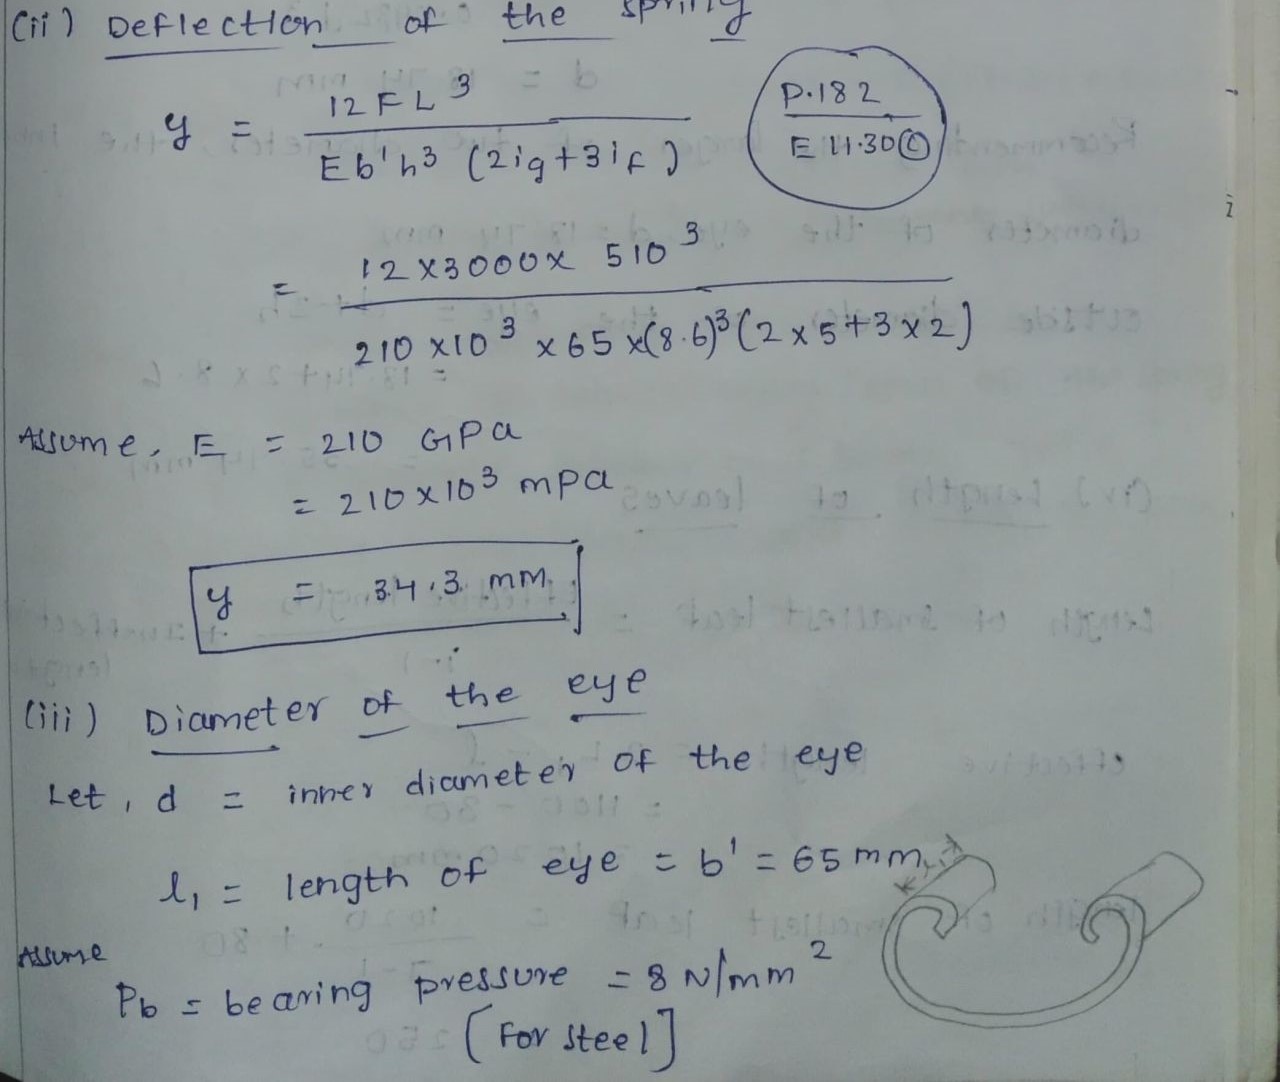 (ii) Deflection of the spring
y = 12FL³ / Eb'h³ (2ig+3if)
P.182
E 11.30(c)
= 12×3000× 510³ / 210 ×10³ ×65 ×(8.6)³(2×5+3×2)
Assume, E = 210 GPa
= 210×10³ mpa
y = 34.3 mm
(iii) Diameter of the eye
Let, d = inner diameter of the eye
l₁ = length of eye = b' = 65mm
Assume
Pb = bearing pressure = 8 N/mm²
[For steel]